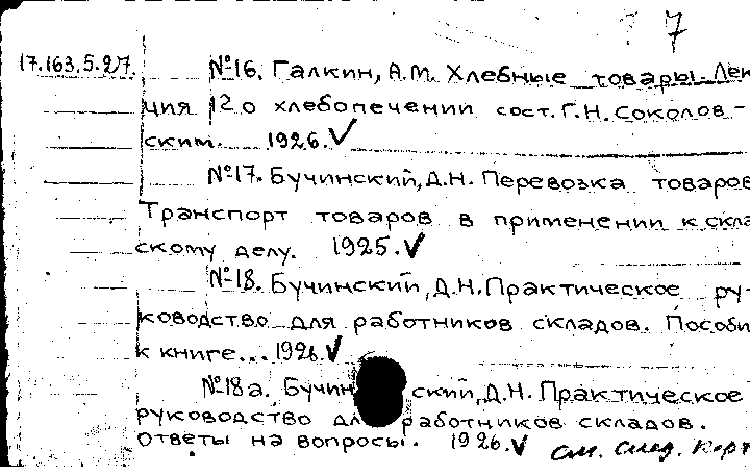 7
17.163.5.27. №16. Галкин, А.М. Хлебные товары. Лек
ция 12 о хлебопечении сост. Г.Н. Соколов-
ским. 1926. ✓
№17. Бучинский, Д.Н. Перевозка товаров
Транспорт товаров в применении к скла
скому делу. 1925. ✓
№18. Бучинский, Д.Н. Практическое ру-
ководство для работников складов. Пособи
к книге... 1926. ✓
№18а. Бучинский, Д.Н. Практическое
руководство для работников складов.
Ответы на вопросы. 1926. ✓ см. след. карт